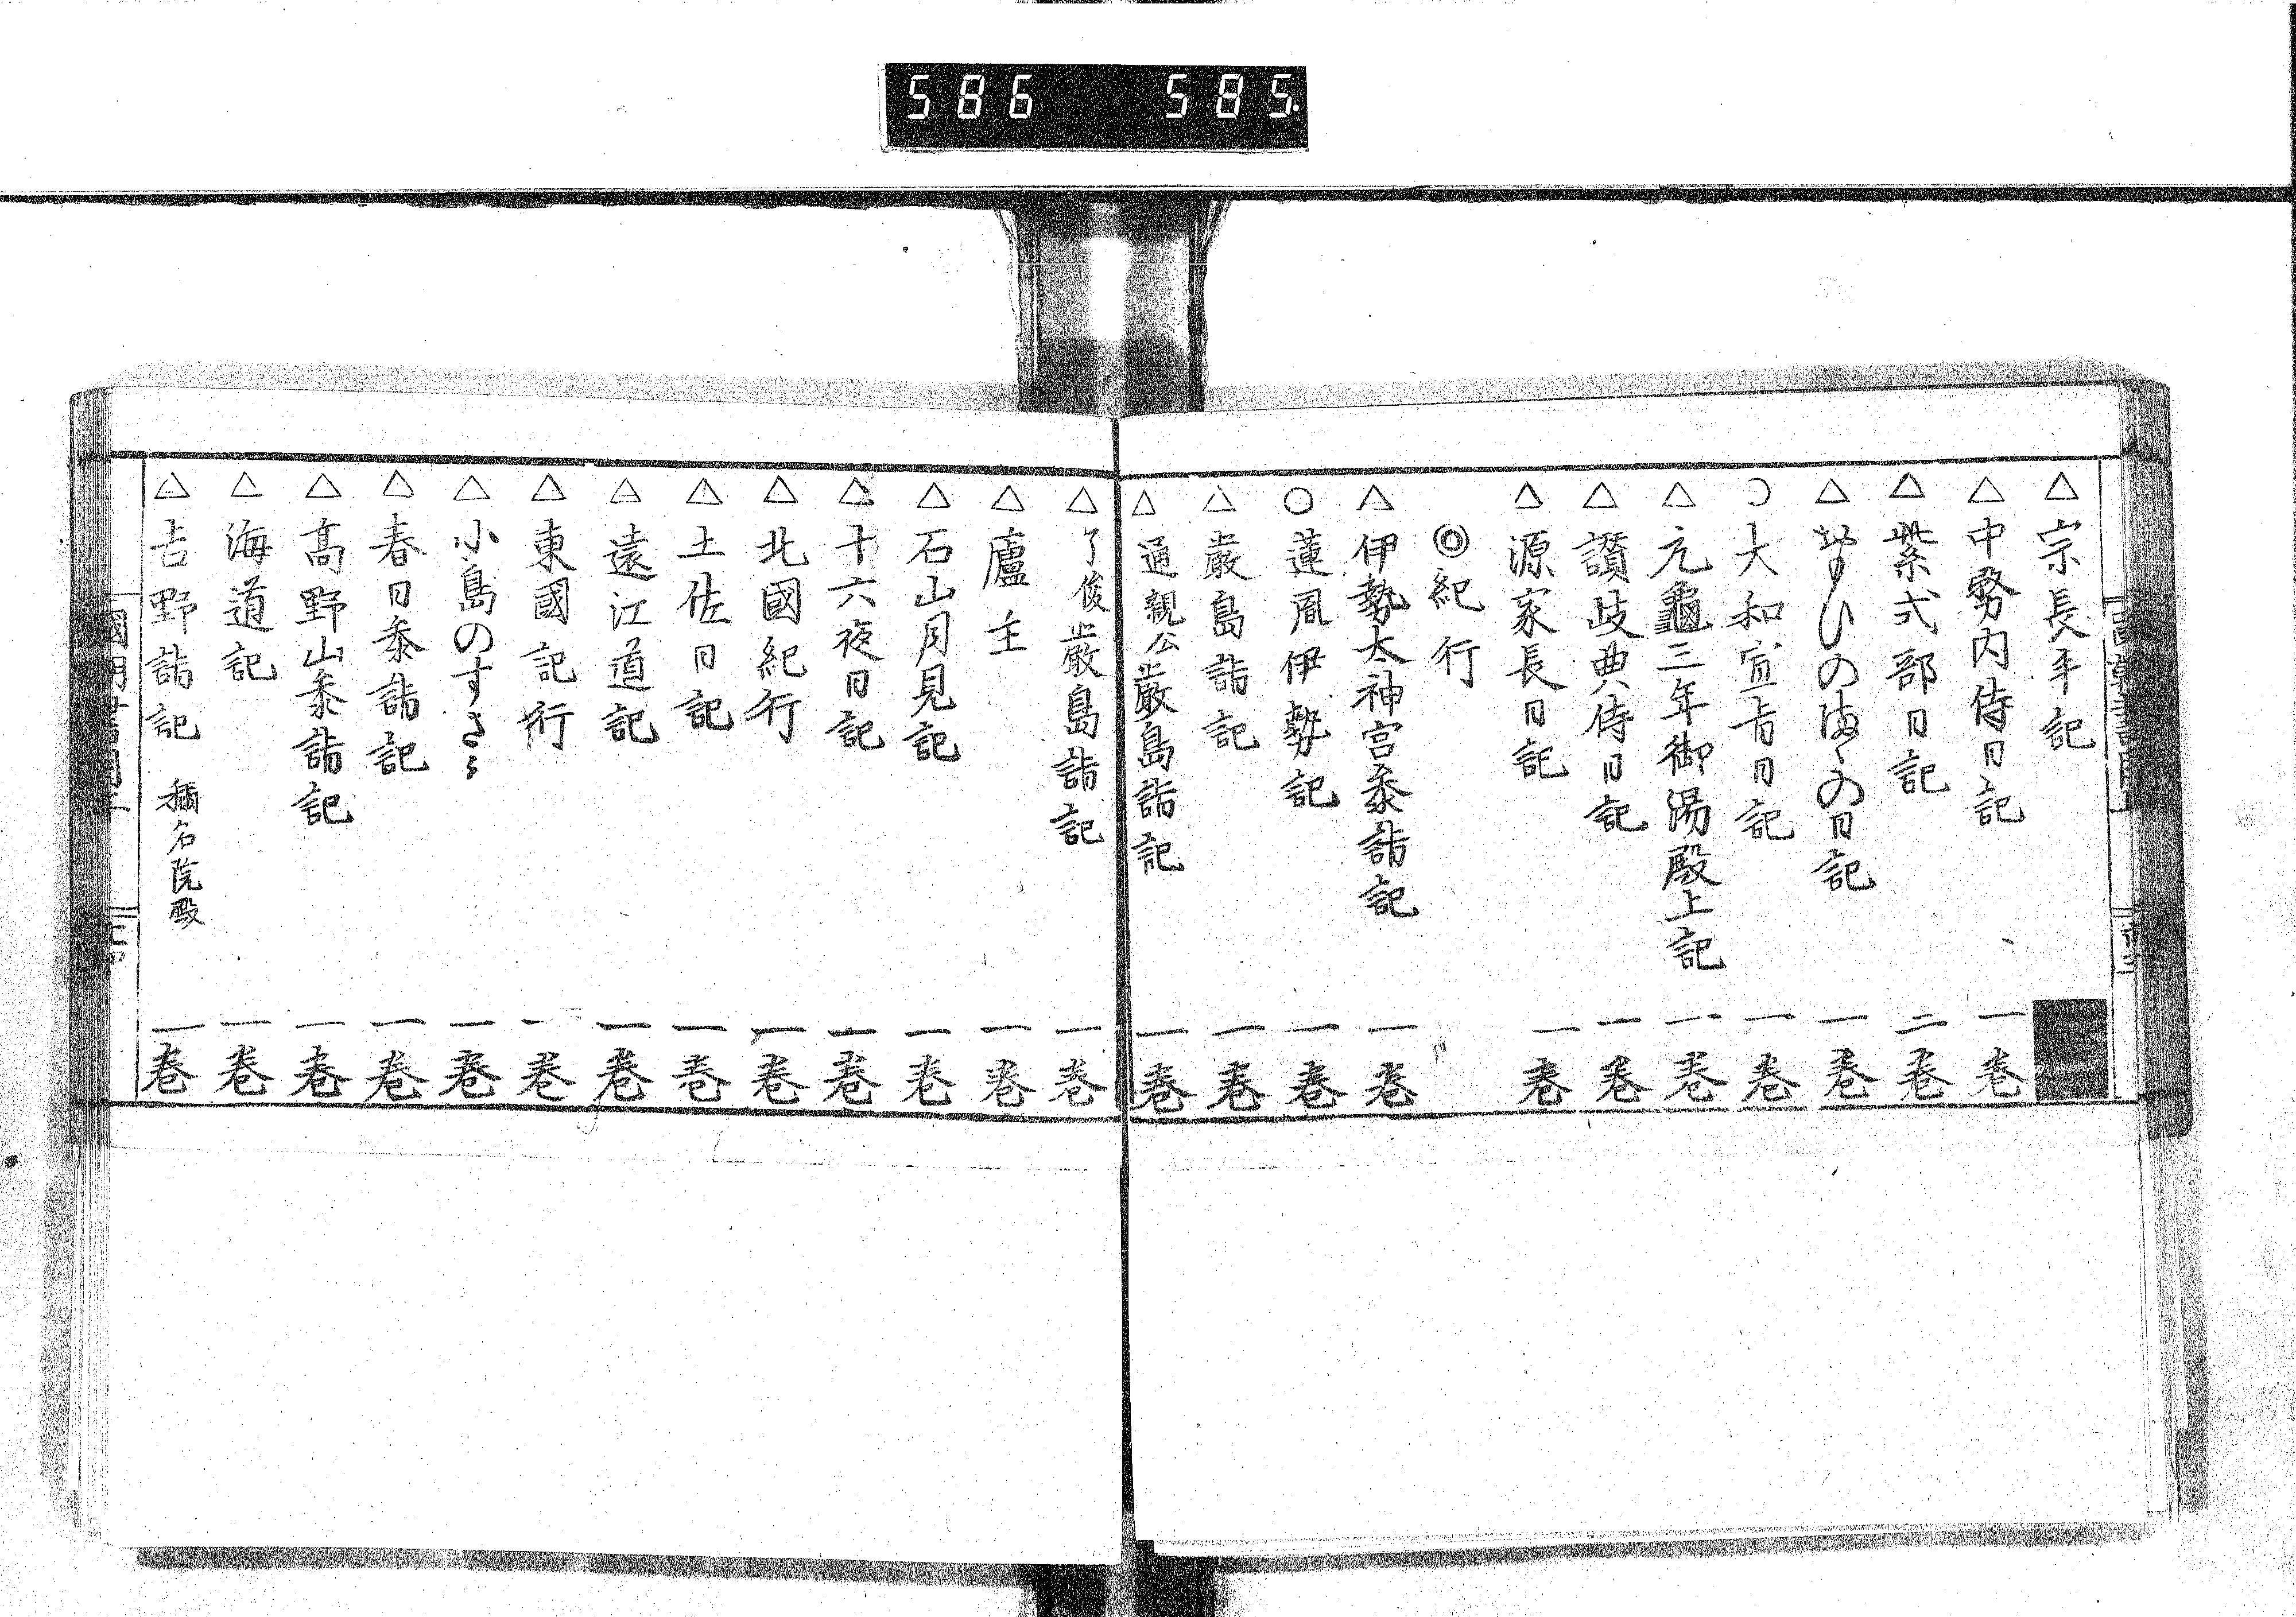 586 585
△宗長手記
△中務内侍日記 一巻
△紫式部日記 二巻
△むすひのほゝの日記 一巻
○大和宣旨日記 一巻
△元龜三年御湯殿上記 一巻
△讃岐典侍日記 一巻
△源家長日記 一巻
◎紀行
△伊勢太神宮参詣記 一巻
○蓮胤伊勢記 一巻
△嚴島詣記 一巻
△通親公嚴島詣記 一巻
△了俊嚴島詣記 一巻
△廬主 一巻
△石山月見記 一巻
△十六夜日記 一巻
△北國紀行 一巻
△土佐日記 一巻
△遠江道記 一巻
△東國記行 一巻
△小島のすさミ 一巻
△春日参詣記 一巻
△高野山参詣記 一巻
△海道記 一巻
△吉野詣記 稱名院殿 一巻